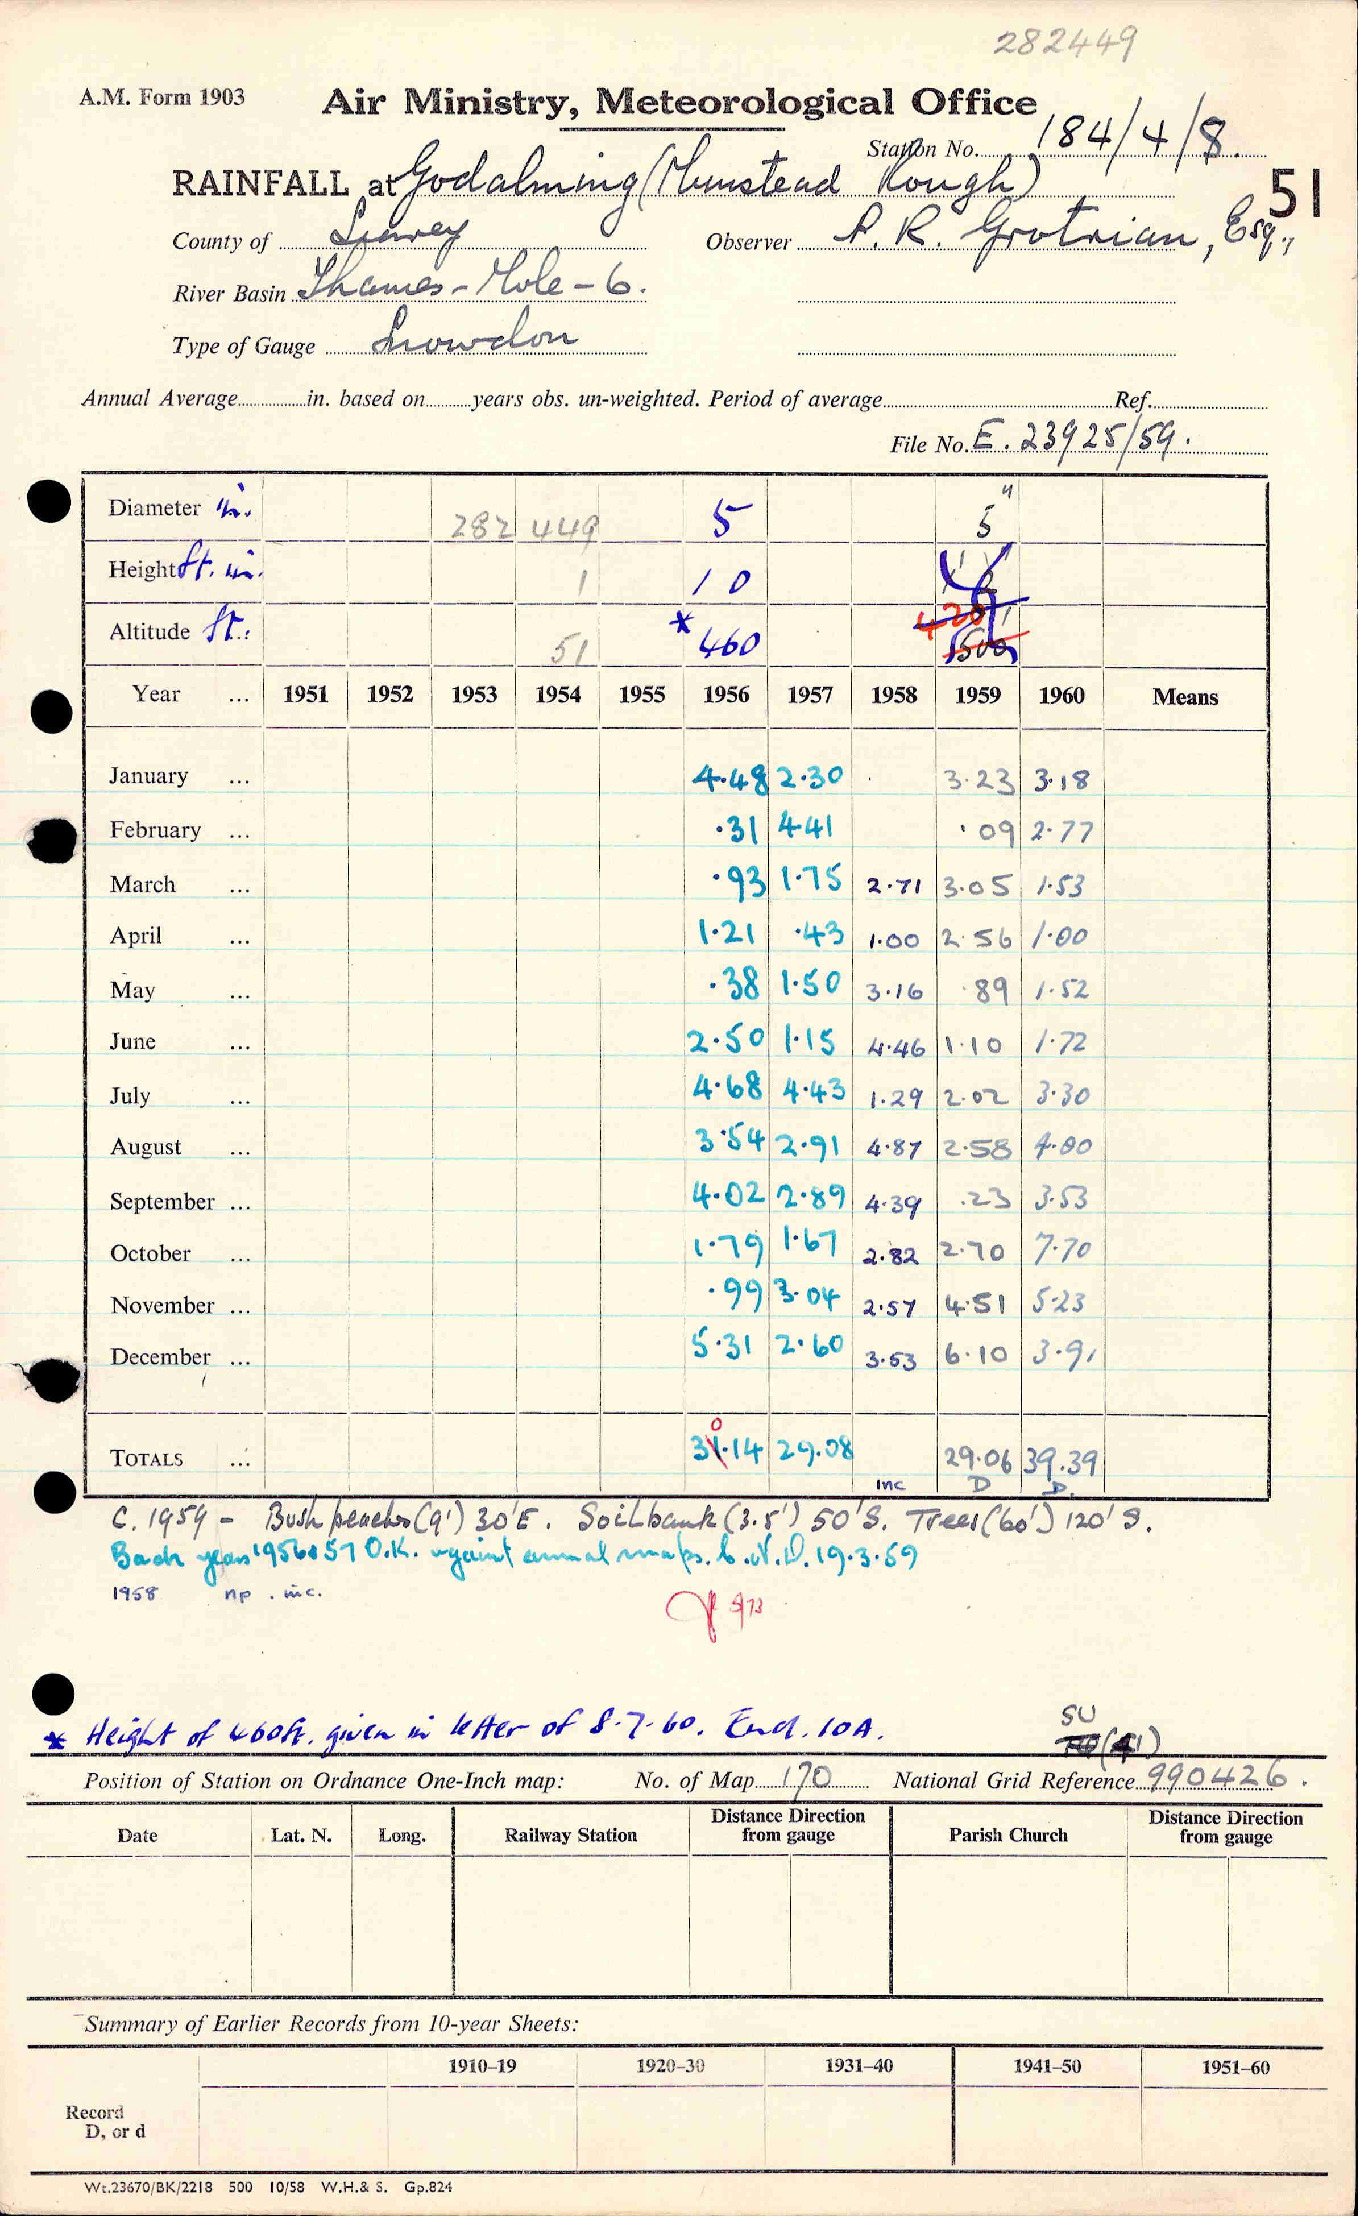 282449
A.M. Form 1903
Air Ministry, Meteorological Office
Station No. 184/4/8.
RAINFALL at Godalming (Munstead Rough)
51
County of Surrey Observer P. R. Grotrian, Esq.,
River Basin Thames - Mole - 6.
Type of Gauge Snowdon
Annual Average in. based on years obs. un-weighted. Period of average Ref.
File No. E. 23925/59.
Diameter in. 282 449 5 5"
Height ft. in. 1 1 0
Altitude ft. 51 * 460 420 500
Year ... 1951 1952 1953 1954 1955 1956 1957 1958 1959 1960 Means
January ... 4.48 2.30 3.23 3.18
February ... .31 4.41 .09 2.77
March ... .93 1.75 2.71 3.05 1.53
April ... 1.21 .43 1.00 2.56 1.00
May ... .38 1.50 3.16 .89 1.52
June ... 2.50 1.15 4.46 1.10 1.72
July ... 4.68 4.43 1.29 2.02 3.30
August ... 3.54 2.91 4.87 2.58 4.00
September ... 4.02 2.89 4.39 .23 3.53
October ... 1.79 1.67 2.82 2.70 7.70
November ... .99 3.04 2.57 4.51 5.23
December ... 5.31 2.60 3.53 6.10 3.91
0
TOTALS ... 31.14 29.08 29.06 39.39
inc D D.
C. 1959 - Bush peaches (9') 30'E. Soil bank (3.5') 50'S. Trees (60') 120' S.
Back years 1956 & 57 O.K. against annual maps. 19.3.59
1958 np. inc.
5/73
* Height of 460ft. given in letter of 8.7.60. Encl. 10A.
SU
(41)
Position of Station on Ordnance One-Inch map: No. of Map 170 National Grid Reference 990426.
Date Lat. N. Long. Railway Station Distance Direction from gauge Parish Church Distance Direction from gauge
Summary of Earlier Records from 10-year Sheets:
1910–19 1920–30 1931–40 1941–50 1951–60
Record
D, or d
Wt.23670/BK/2218 500 10/58 W.H.& S. Gp.824